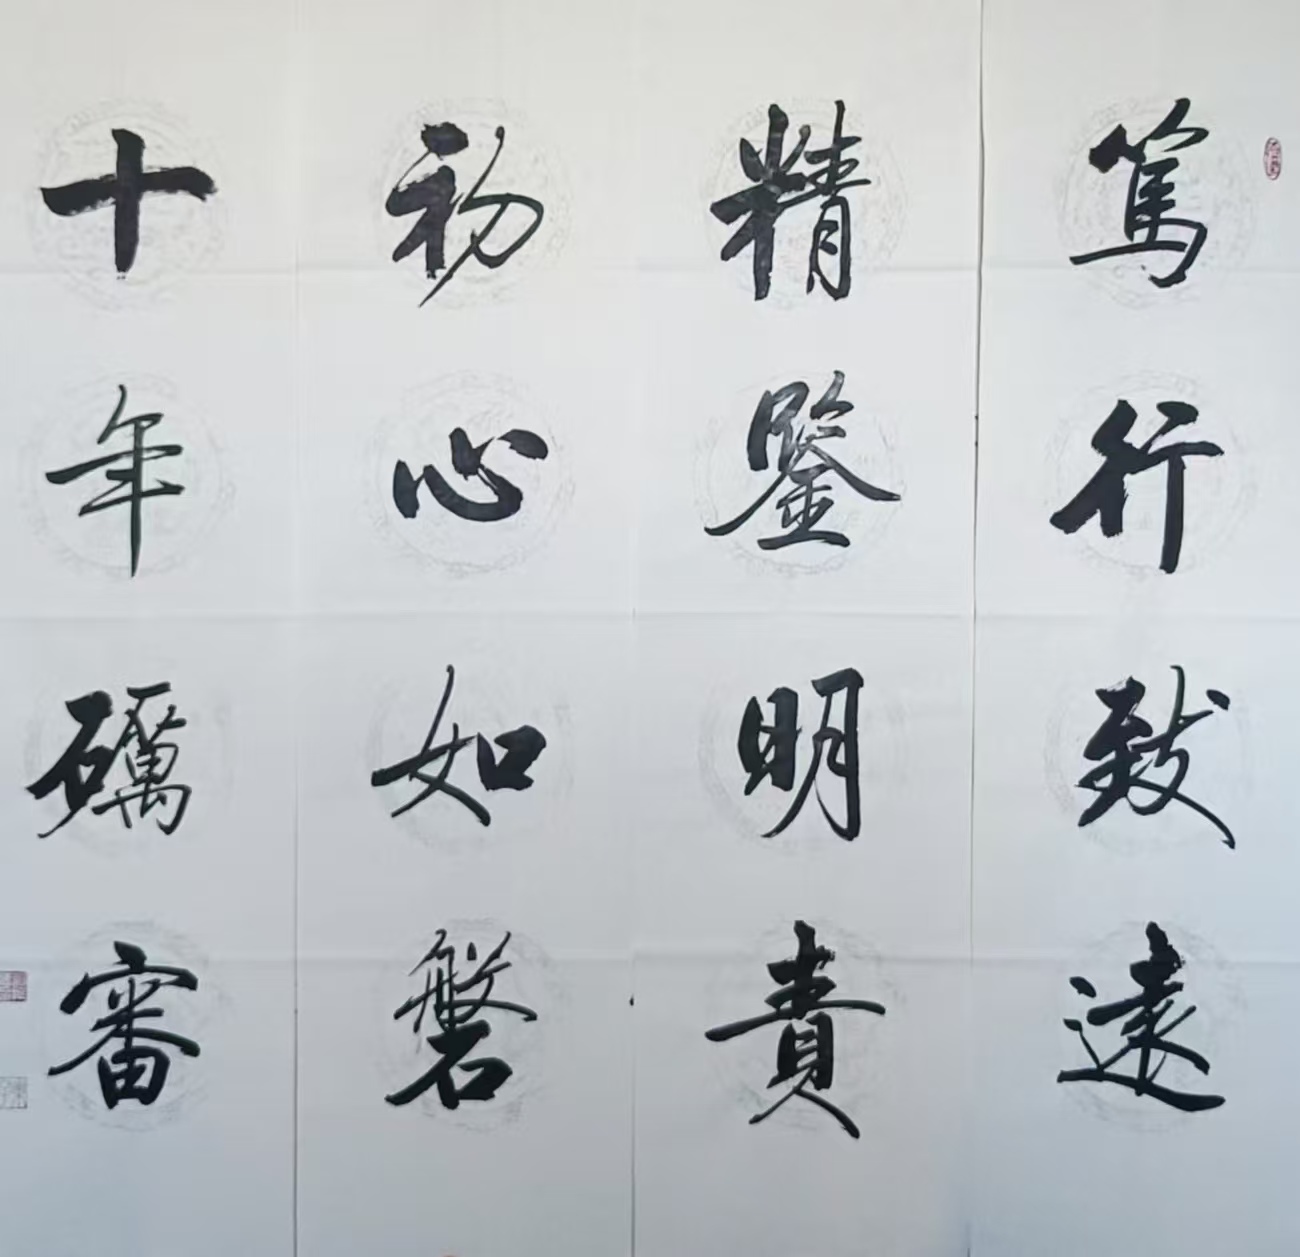 篤行致遠
精鑒明責
初心如磐
十年礪審